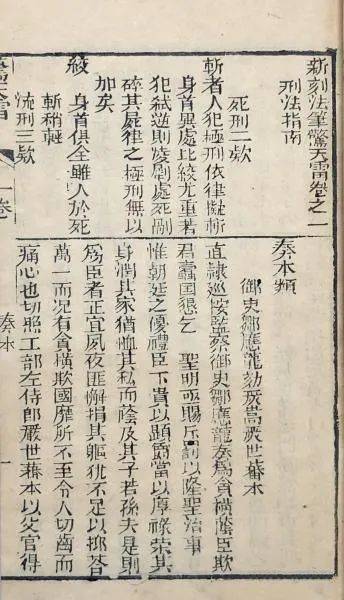 新刻法筆驚天雷卷之一
刑法指南
死刑二欵
斬者人犯極刑依律擬斬
身首異處比絞尤重若
犯弒逆則凌剮處死剮
碎其屍律之極刑無以
加矣
絞 身首俱全雖人於死
斬稍輕
流刑三欵
奏本類
御史鄒應龍劾嚴嵩世蕃本
直隸巡按監察御史鄒應龍奏爲貪橫蔭臣欺
君蠹國懇乞 聖明亟賜斥以隆聖治事
惟朝廷之優禮臣下貴以顯爵當以厚祿榮其
身潤其家猶恤其私而蔭及其子若孫夫是則
爲臣者正宜夙夜匪懈捐其軀犹不足以荅
萬一而况有貪橫欺國靡所不至令人切齒而
痛心也切照工部左侍郎嚴世蕃本以父官得
一卷
奏本
一